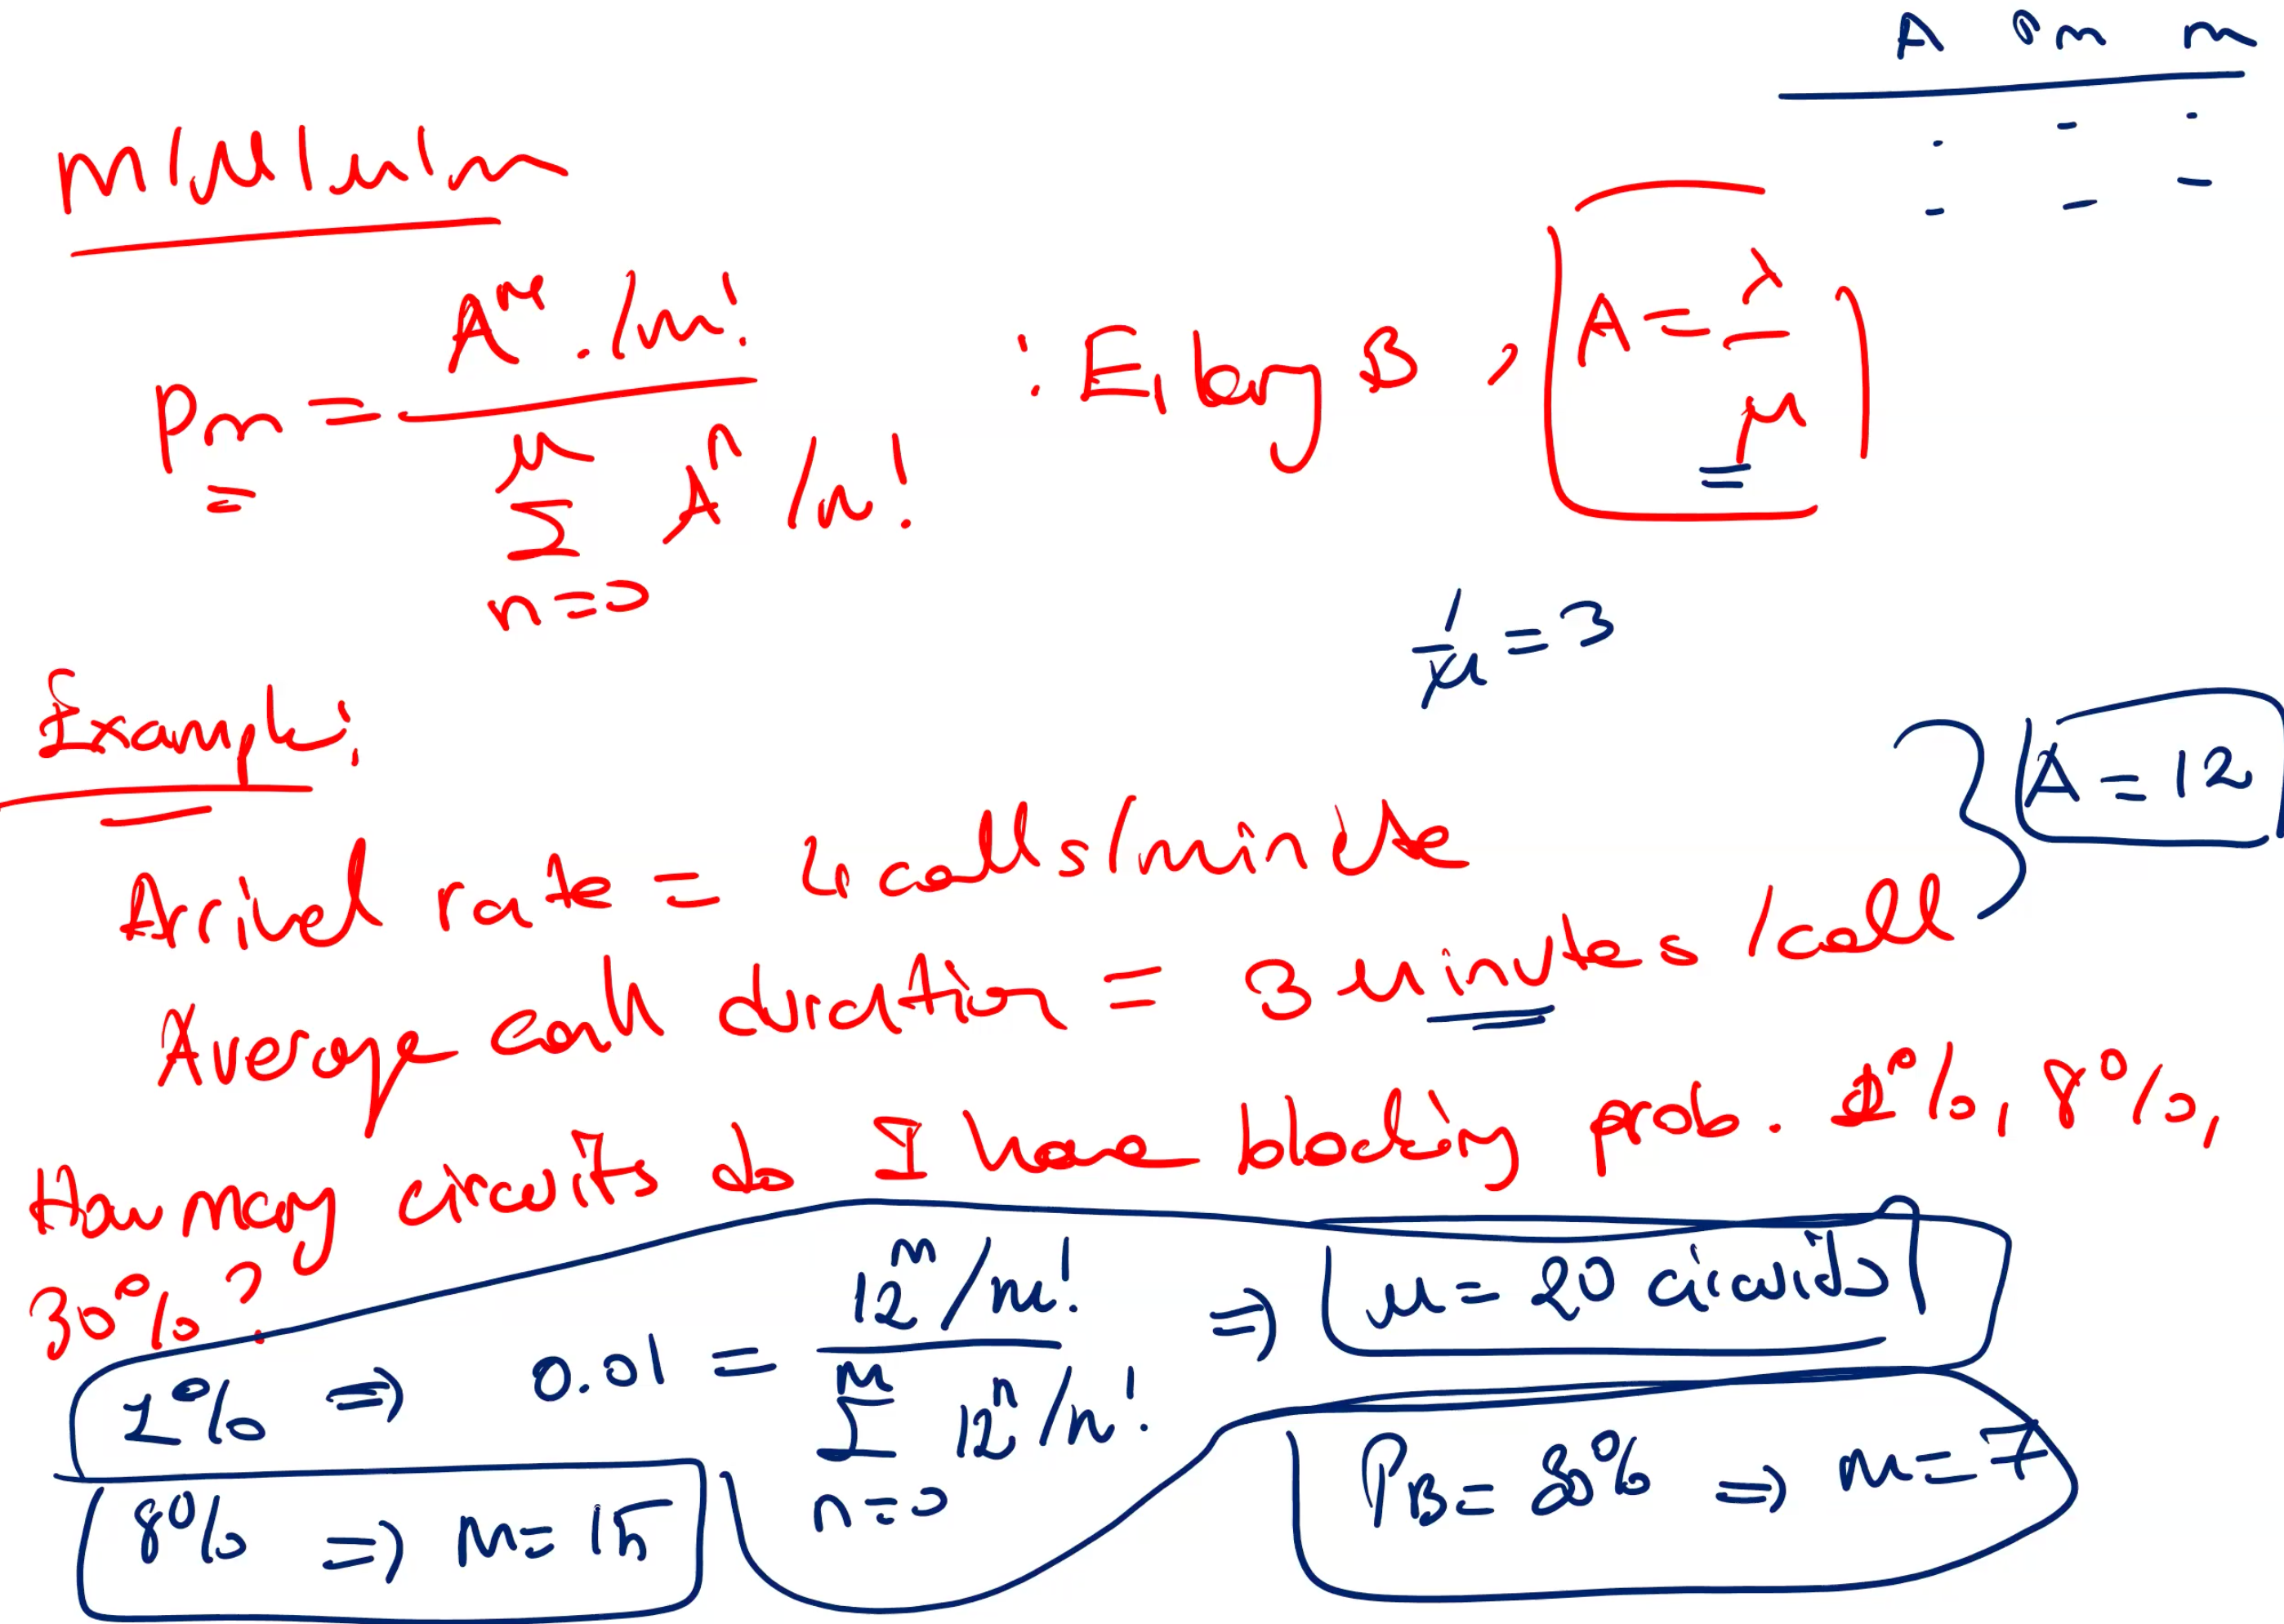 A Pm m
M/M/m/m
Pm = A^m / m! / Σ_{n=0}^{m} A^n / n! : Erlang B, A = λ/μ
1/μ = 3
Example:
Arrival rate = 4 calls/minute
A = 12
Average call duration = 3 minutes/call
How many circuits do I have blocking prob. 1%, 8%,
30%?
1% ⇒ 0.01 = 12^m / m! / Σ_{n=0}^{m} 12^n / n! ⇒ m = 20 circuits
8% ⇒ m = 15